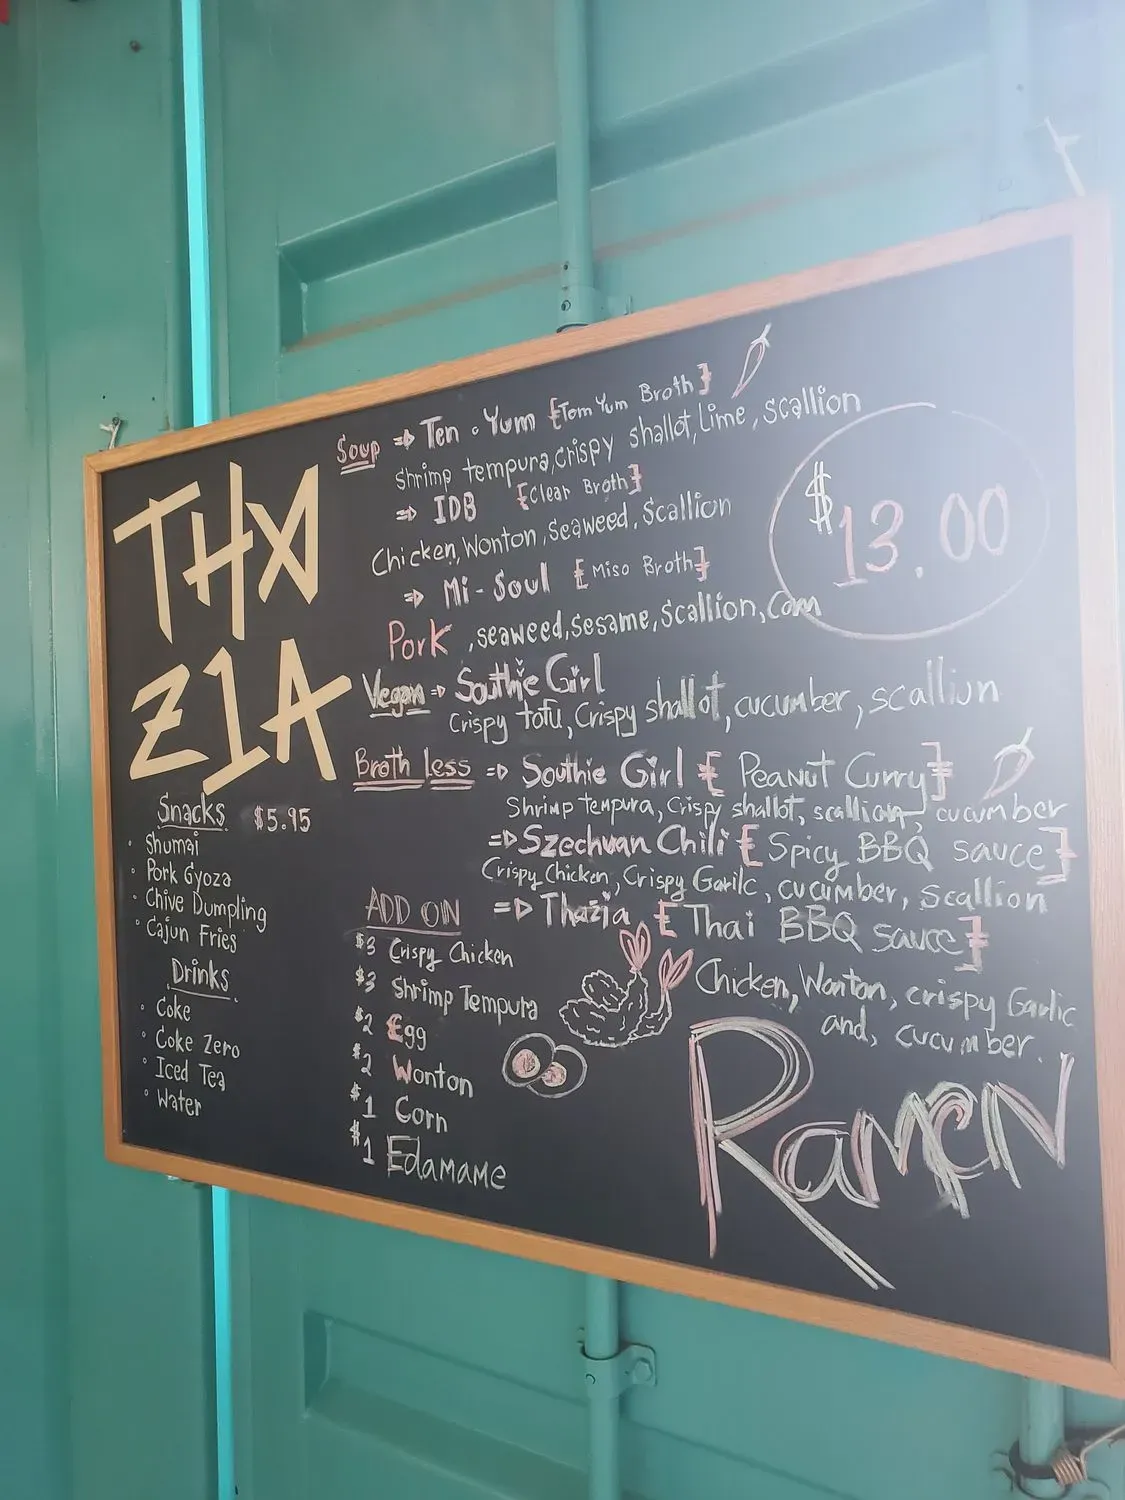 THX
ZIA
Soup ⇒ Ten · Yum [Tom Yum Broth]
Shrimp tempura, crispy shallot, Lime, scallion
⇒ IDB [Clear Broth]
Chicken, Wonton, Seaweed, Scallion
⇒ Mi-Soul [Miso Broth]
Pork, seaweed, Sesame, Scallion, Corn
$13.00
Vegan ⇒ Southie Girl
Crispy tofu, Crispy shallot, cucumber, scallion
Broth less ⇒ Southie Girl [Peanut Curry]
Shrimp tempura, Crispy shallot, scallion, cucumber
⇒ Szechuan Chili [Spicy BBQ sauce]
Crispy Chicken, Crispy Garilc, cucumber, Scallion
⇒ Thazia [Thai BBQ sauce]
Chicken, Wonton, crispy Garlic
and, cucumber.
Snacks $5.95
° Shumai
° Pork Gyoza
° Chive Dumpling
° Cajun Fries
Drinks
° Coke
° Coke Zero
° Iced Tea
° Water
ADD ON
$3 Crispy Chicken
$3 Shrimp Tempura
$2 Egg
$2 Wonton
$1 Corn
$1 Edamame
Ramen